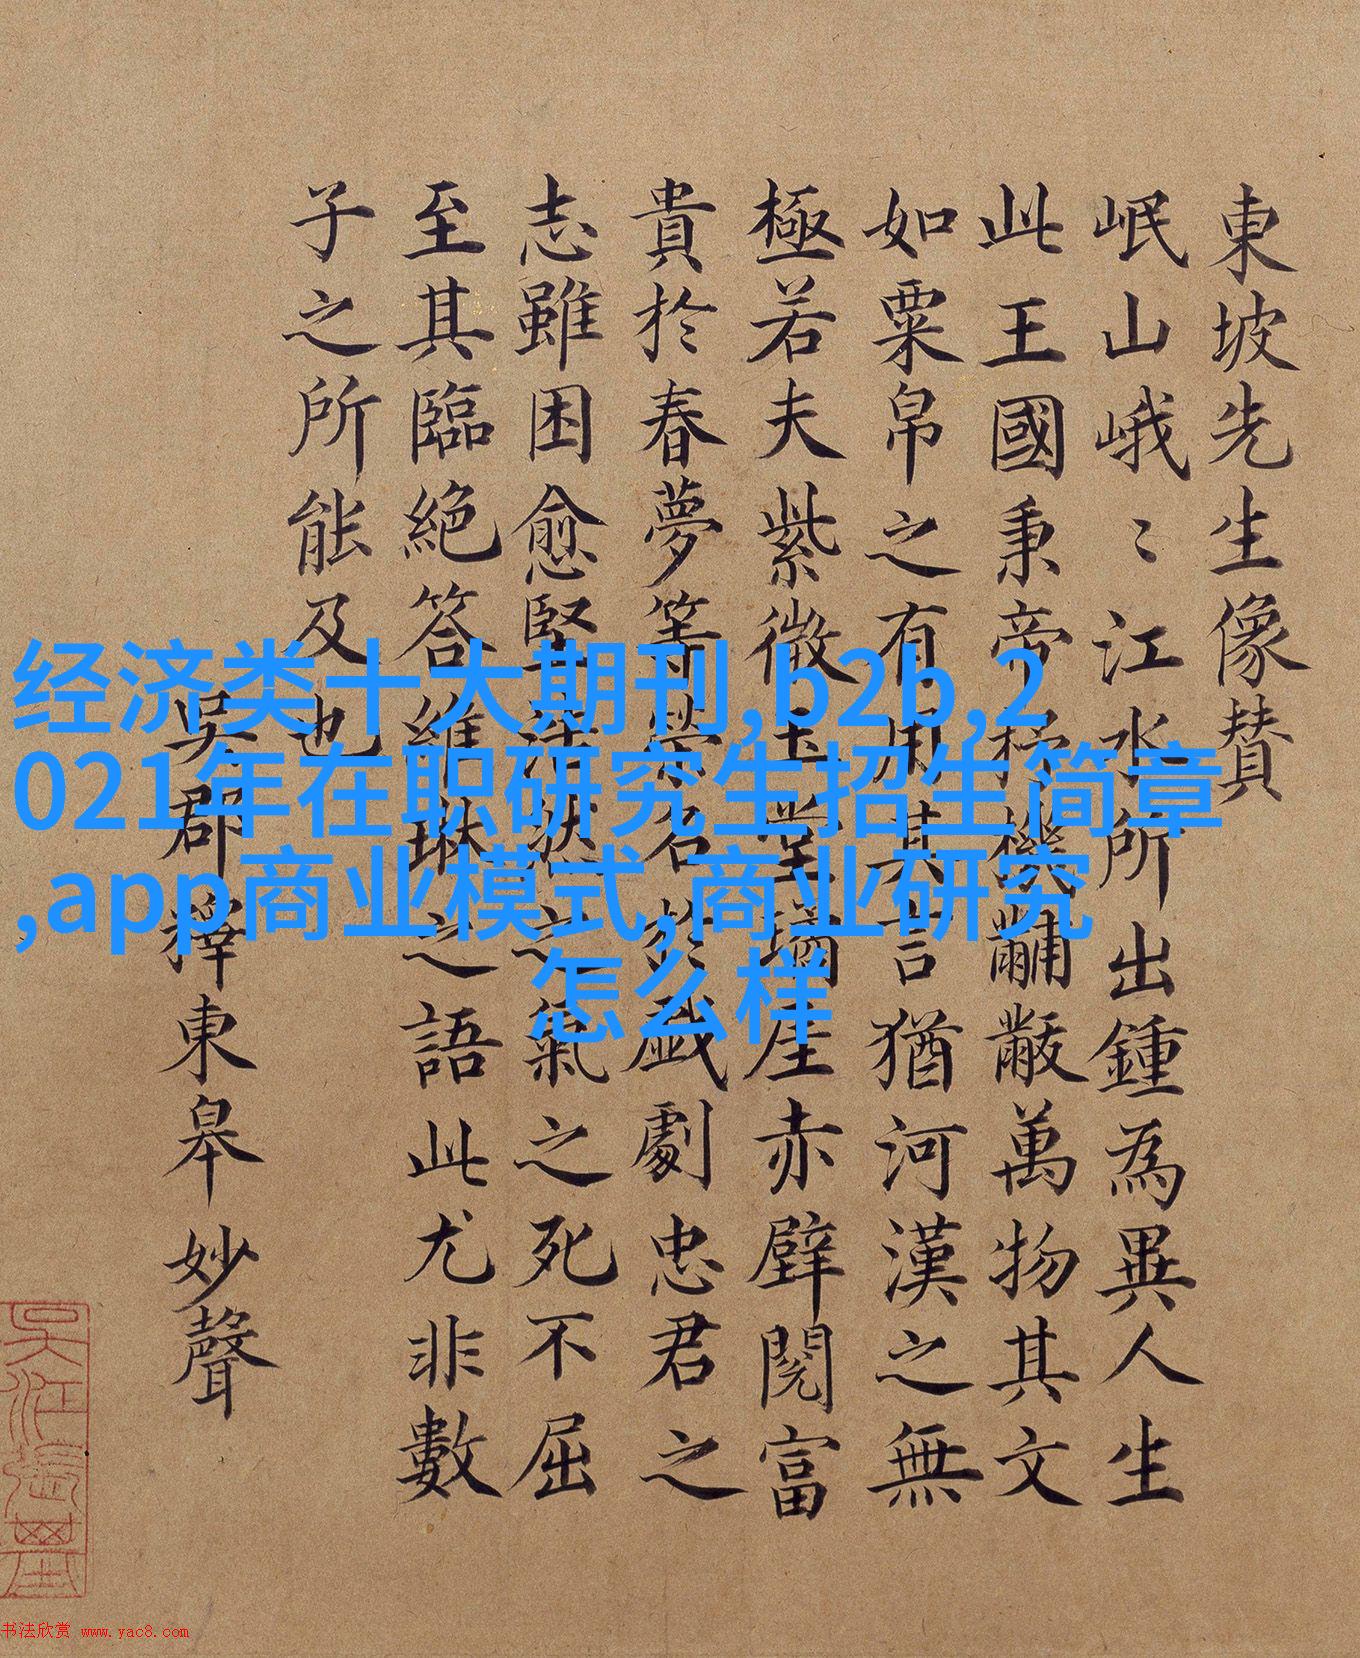 東坡先生像賛
岷山峨〻江水所出鍾為異人生
此王國秉帝杼機黼黻萬物其文
如粟帛之有用其言猶河漢之無
極若夫紫微玉堂瓊崖赤壁閱富
貴於春夢等榮名於戲劇忠君之
志雖困愈堅浩然之氣之死不屈
至其臨絕答維琳之語此尤非數
子之所能及也
吳郡釋東皋妙聲
经济类十大期刊,b2b,2
021年在职研究生招生简章
,app商业模式,商业研究
怎么样
书法欣赏 www.yac8.com